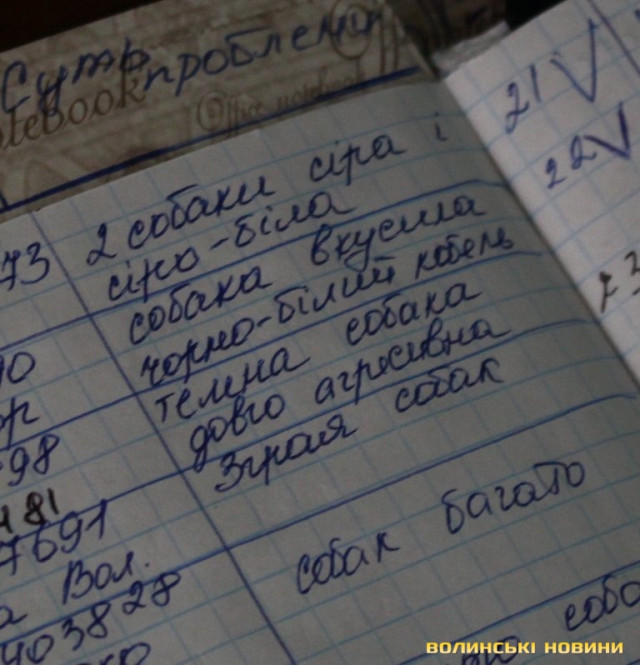 Суть проблеми
notebook
Office notebook
21 V
22 V
73 2 собаки сіра і
сіро-біла
собака вкусила
чорно-білий кобель
темна собака
довго агресивна
Зграя собак
98
481
7691
Вол.
403828
собак багато
волинські новини